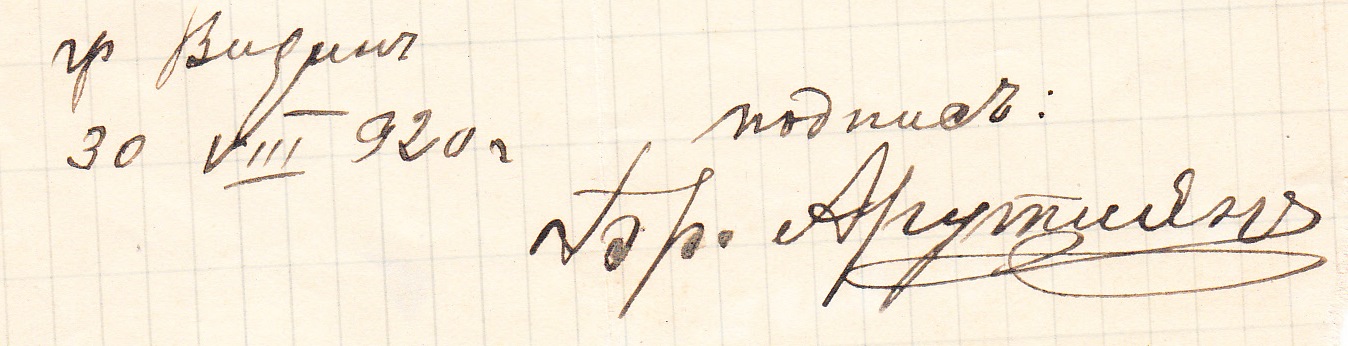 гр Видинъ
30 VIII 920 г
подписъ:
Арутиянъ